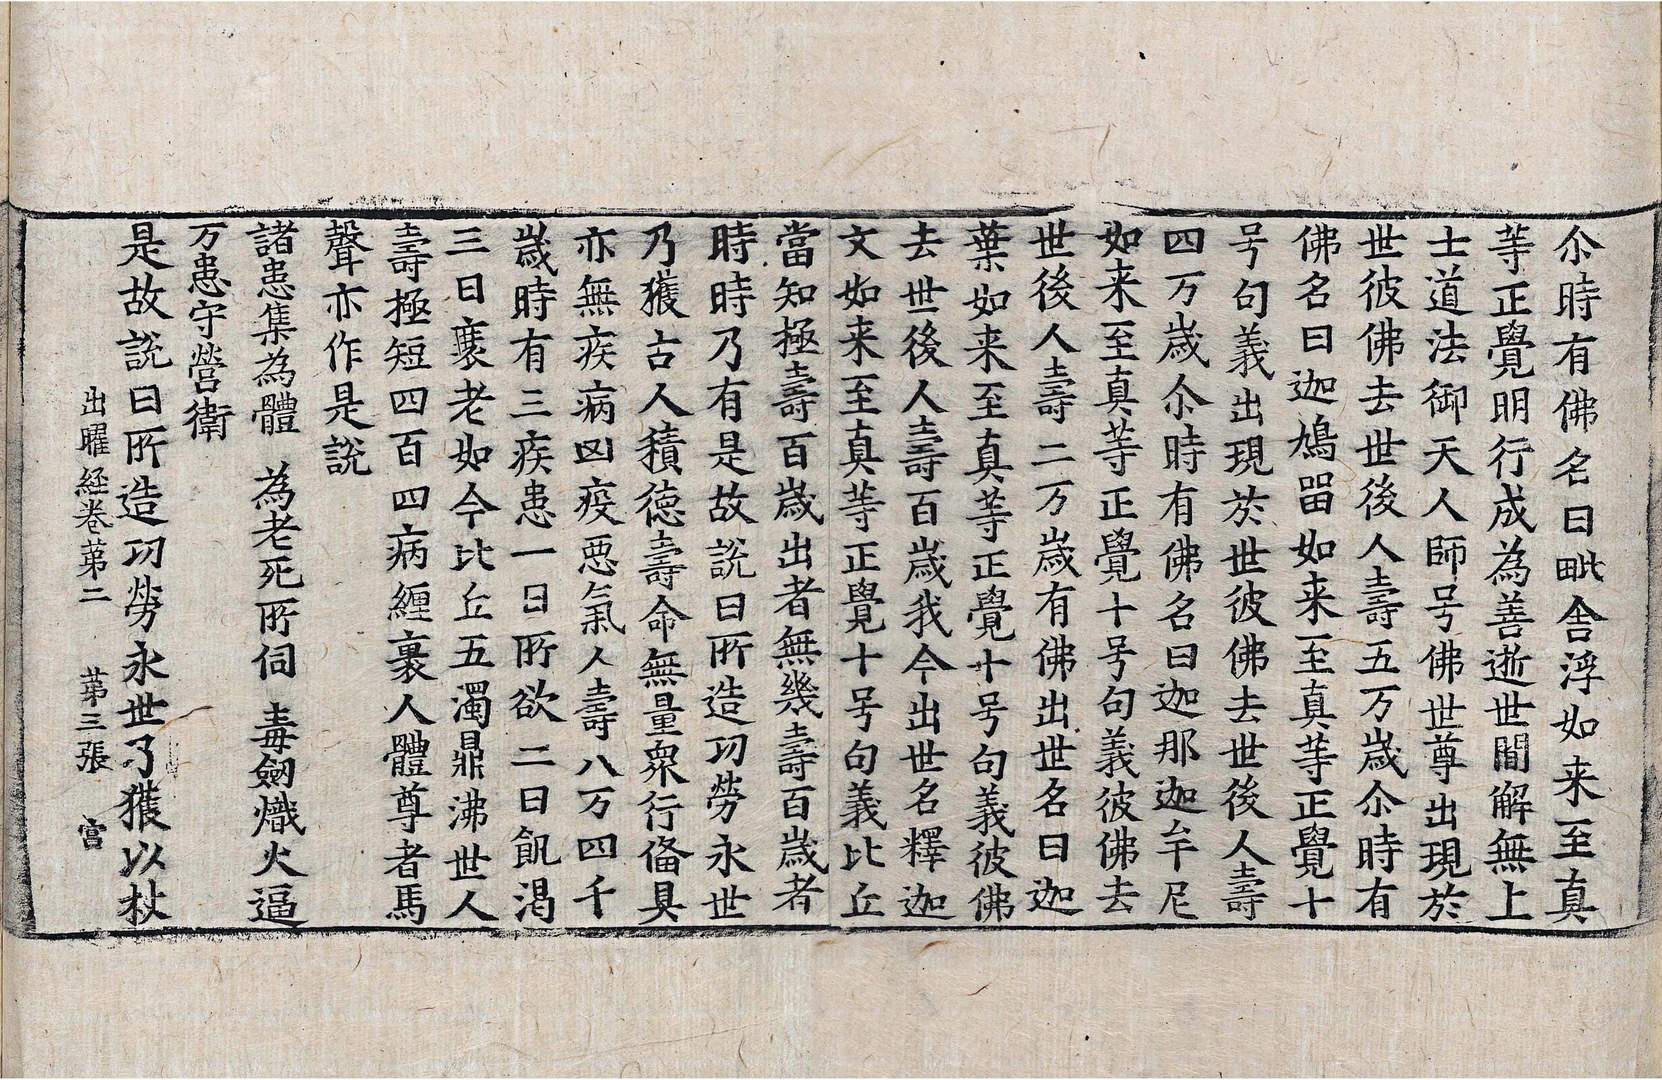 尒時有佛名曰毗舍浮如来至真
等正覺明行成為善逝世閒解無上
士道法御天人師号佛世尊出現於
世彼佛去世後人壽五万歲尒時有
佛名曰迦鳩留如来至真等正覺十
号句義出現於世彼佛去世後人壽
四万歲尒時有佛名曰迦那迦牟尼
如来至真等正覺十号句義彼佛去
世後人壽二万歲有佛出世名曰迦
葉如来至真等正覺十号句義彼佛
去世後人壽百歲我今出世名釋迦
文如来至真等正覺十号句義比丘
當知極壽百歲出者無幾壽百歲者
時時乃有是故說曰所造功勞永世
乃獲古人積德壽命無量衆行俻具
亦無疾病凶疫惡氣人壽八万四千
歲時有三疾患一曰所欲二曰飢渴
三曰衰老如今比丘五濁鼎沸世人
壽極短四百四病纏裹人體尊者馬
聲亦作是說
諸患集為體　為老死所伺　毒劒熾火逼
万患守營衛
是故說曰所造功勞永世乃獲以杖
出曜経卷第二　第三張　宫